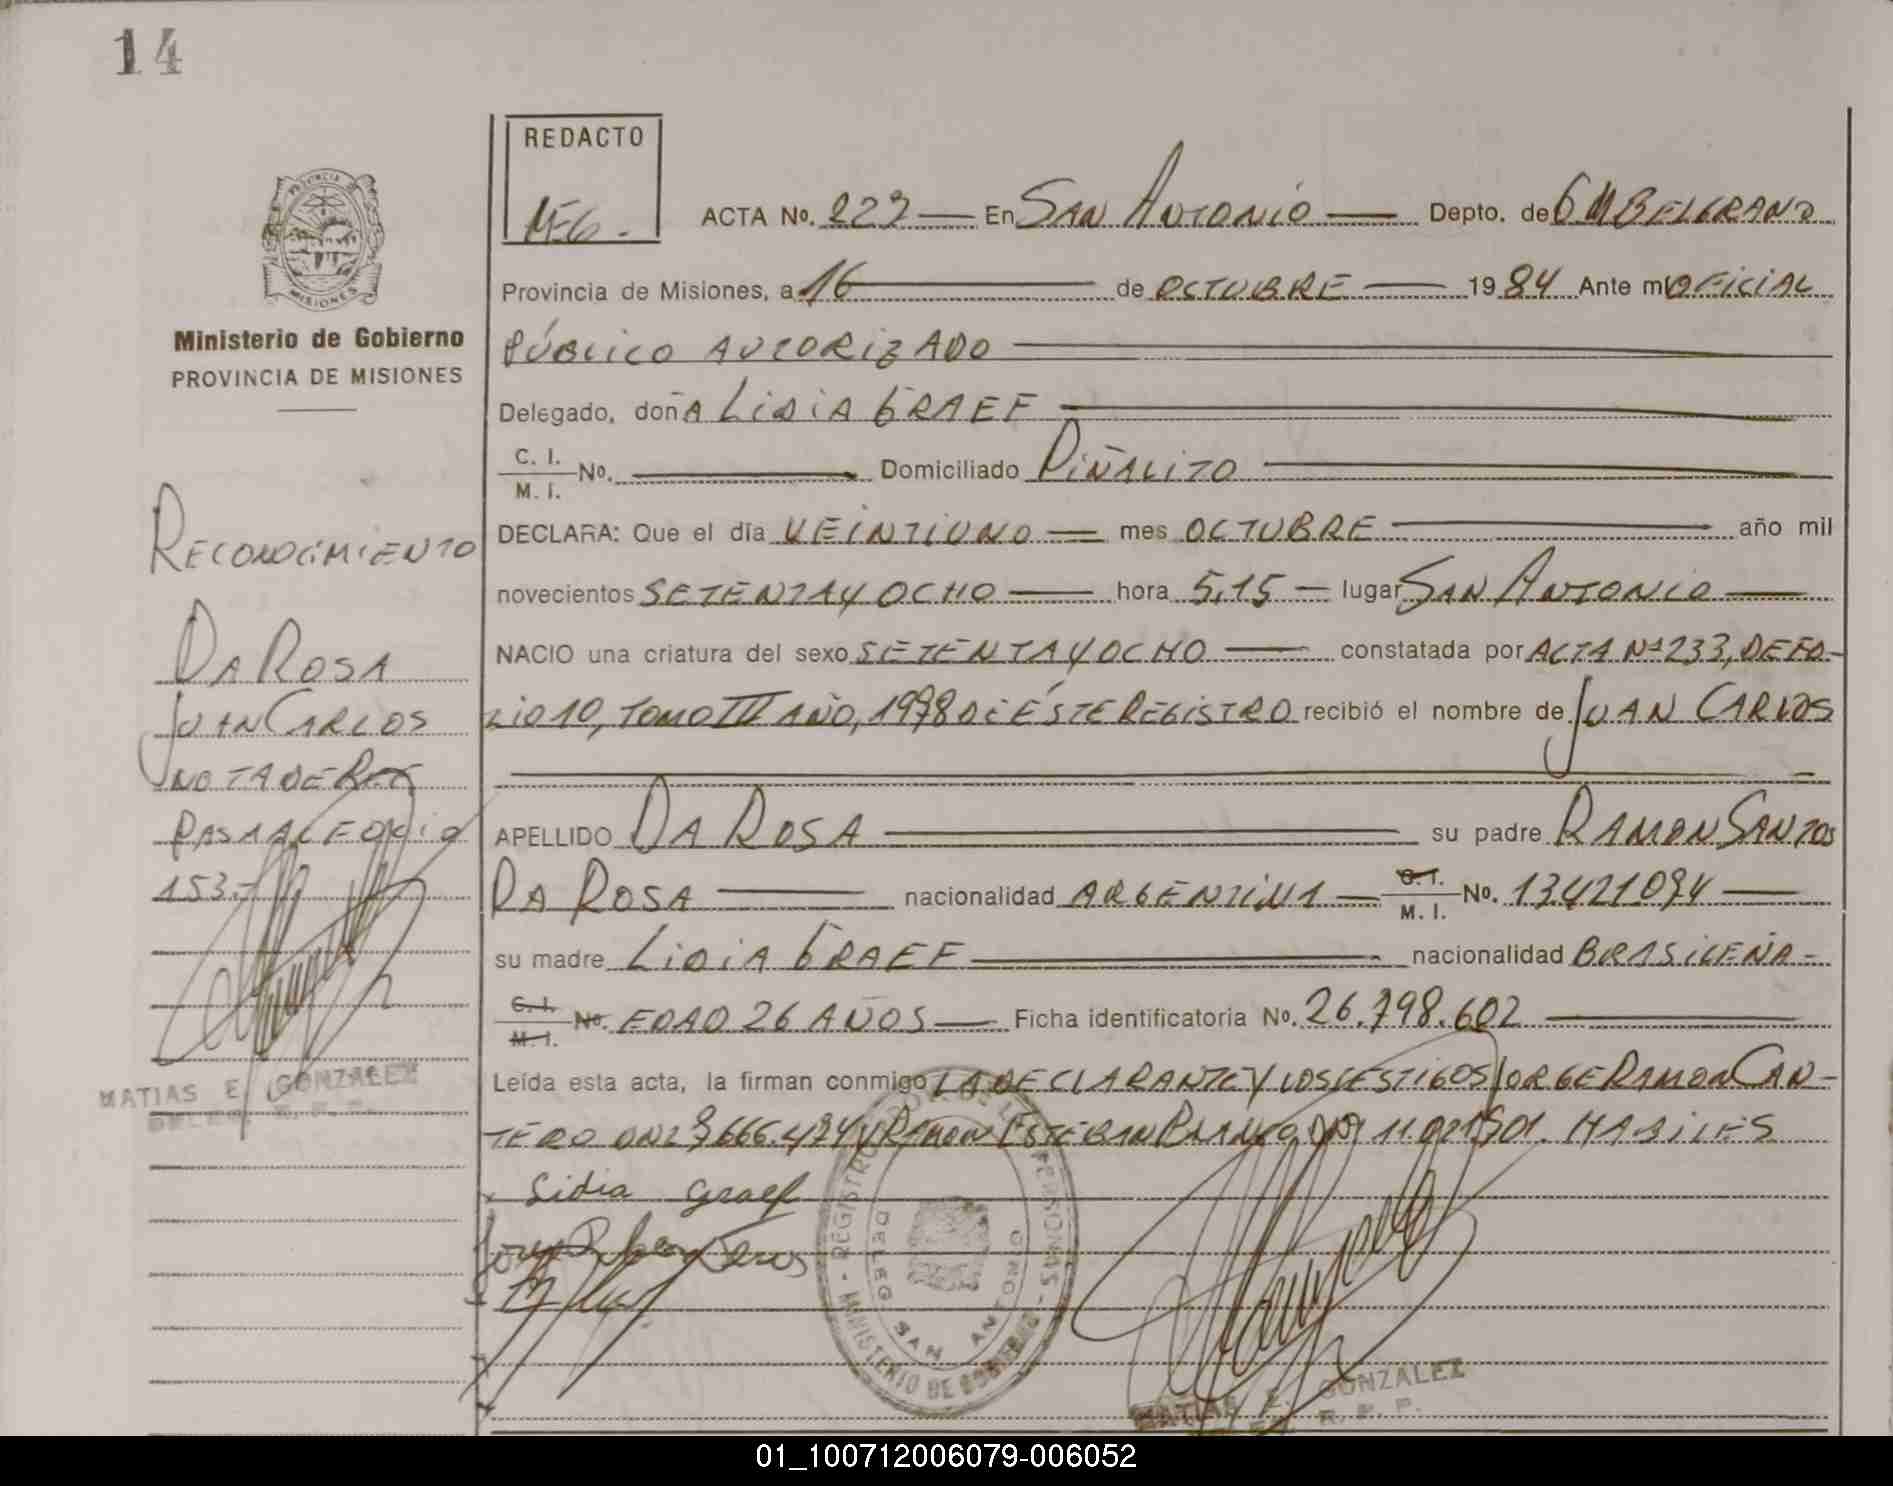 14
REDACTO
MEG.
ACTA No. 223 En SAN ANTONIO Depto. de G M BELGRANO
Provincia de Misiones, a 16 de OCTUBRE 1984 Ante mi OFICIAL
PÚBLICO AUTORIZADO
Delegado, doñA LIDIA GRAEF
C. I.
M. I. No. Domiciliado PIÑALITO
DECLARA: Que el día VEINTIUNO mes OCTUBRE año mil
novecientos SETENTA Y OCHO hora 5,15 lugar SAN ANTONIO
NACIO una criatura del sexo SETENTA Y OCHO constatada por ACTA Nº 233, DE FO-
LIO 10, TOMO III AÑO, 1978 DE ÉSTE REGISTRO recibió el nombre de JUAN CARLOS
APELLIDO DA ROSA su padre RAMON SANTOS
DA ROSA nacionalidad ARGENTINA C. I. M. I. No. 13.421.094
su madre LIDIA GRAEF nacionalidad BRASILEÑA-
C. I. M. I. No. EDAD 26 AÑOS Ficha identificatoria No. 26.798.602
Leída esta acta, la firman conmigo LA DECLARANTE Y LOS TESTIGOS JORGE RAMON CAN-
TERO DNI Y RAMON ESTEBAN HABILES
Lidia Graef
MINISTERIO DE GOBIERNO - REGISTRO DE LAS PERSONAS -
DELEG. SAN ANTONIO
MATIAS E. GONZALEZ
R. P. P.
PROVINCIA DE
MISIONES
Ministerio de Gobierno
PROVINCIA DE MISIONES
RECONOCIMIENTO
DA ROSA
JUAN CARLOS
NOTA DE REF
PASA AL FOLIO
153.-
MATIAS E. GONZALEZ
01_100712006079-006052